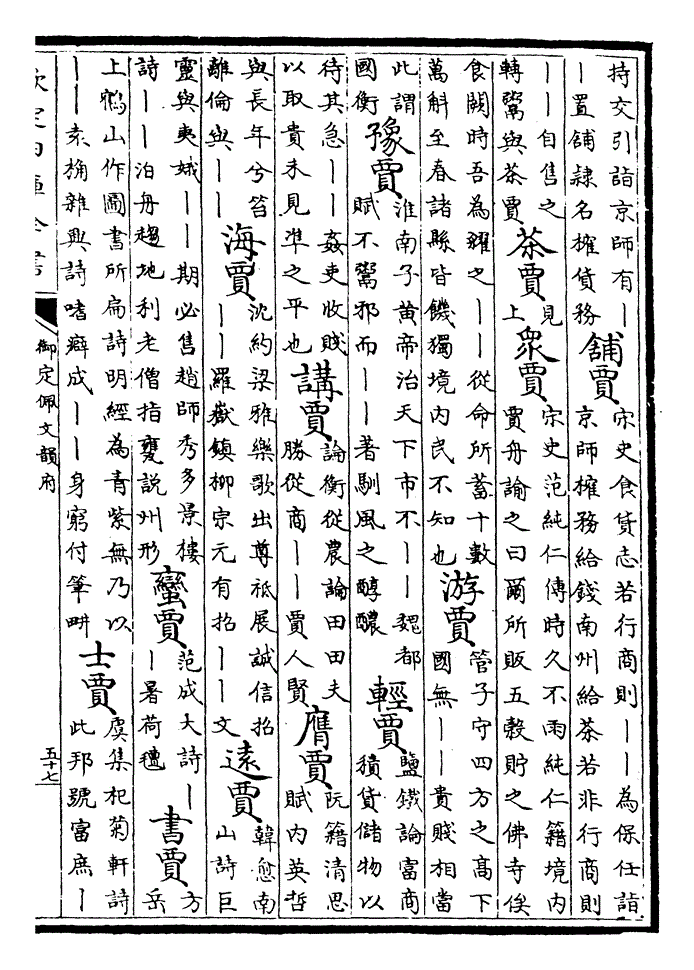 持交引詣京師有｜
｜置舖隷名搉貨務
舖賈
宋史食貨志若行商則｜｜為保任詣
京師搉務給錢南州給茶若非行商則
｜｜自售之
轉鬻與茶賈
茶賈
見
上
衆賈
宋史范純仁傳時久不雨純仁籍境内
賈舟諭之曰爾所販五穀貯之佛寺俟
食闕時吾為糴之｜｜從命所蓄十數
萬斛至春諸縣皆饑獨境内民不知也
游賈
管子守四方之髙下
國無｜｜貴賤相當
此謂
國衡
豫賈
淮南子黄帝治天下市不｜｜魏都
賦不鬻邪而｜｜著馴風之醇醲
輕賈
鹽鐵論富商
積貨儲物以
待其急｜｜姦吏收賤
以取貴未見準之平也
講賈
論衡從農論田田夫
勝從商｜｜賈人賢
膺賈
阮籍清思
賦内英哲
與長年兮笞
離倫與｜｜
海賈
沈約梁雅樂歌出尊祗展誠信招
｜｜羅嶽鎮栁宗元有招｜｜文
遠賈
韓愈南
山詩巨
靈與夷娥｜｜期必售趙師秀多景樓
詩｜｜泊舟趨地利老僧指甕説州形
蠻賈
范成大詩｜
｜暑荷氊
書賈
方
岳
上鵶山作圖書所扁詩明經為青紫無乃以
｜｜袁桷雜興詩嗜癖成｜｜身窮付筆畊
士賈
虞集杞菊軒詩
此邦號富庶｜
欽定四庫全書
御定佩文韻府
五十七